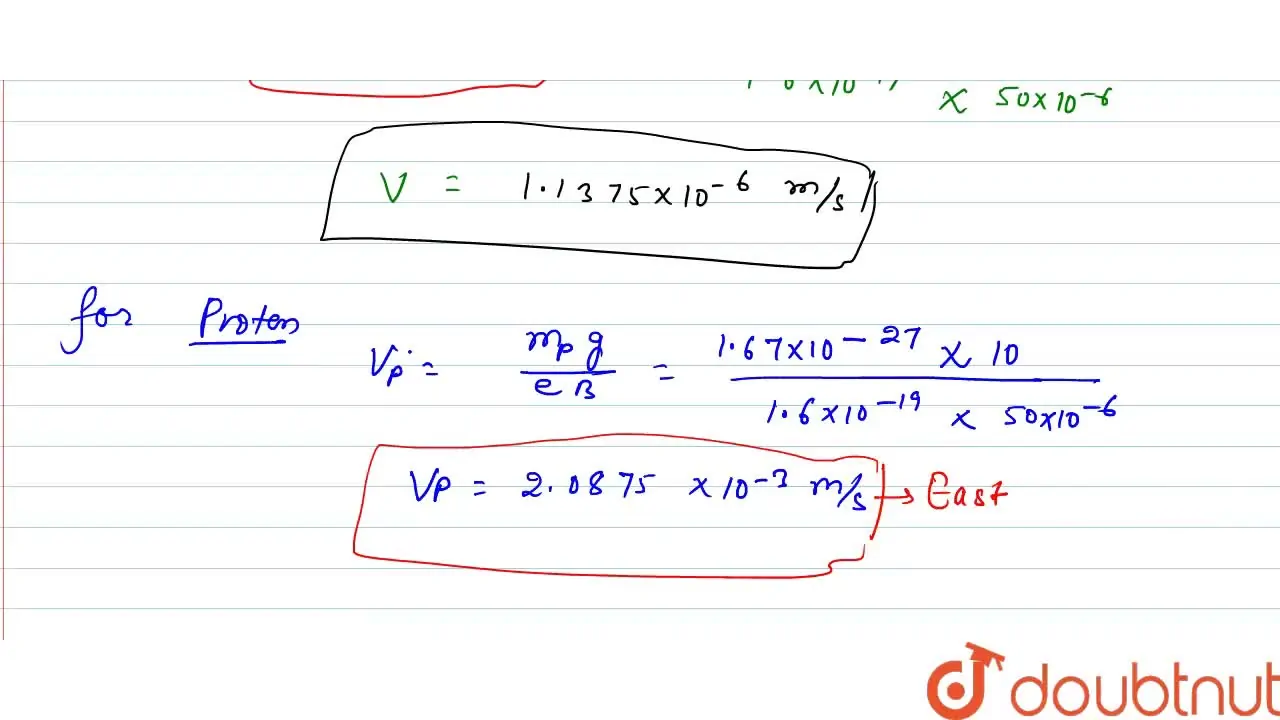 × 50×10⁻⁶
V = 1.1375×10⁻⁶ m/s
for Proton
Vp = mpg / eB = 1.67×10⁻²⁷ × 10 / 1.6×10⁻¹⁹ × 50×10⁻⁶
Vp = 2.0875 ×10⁻³ m/s → East
doubtnut